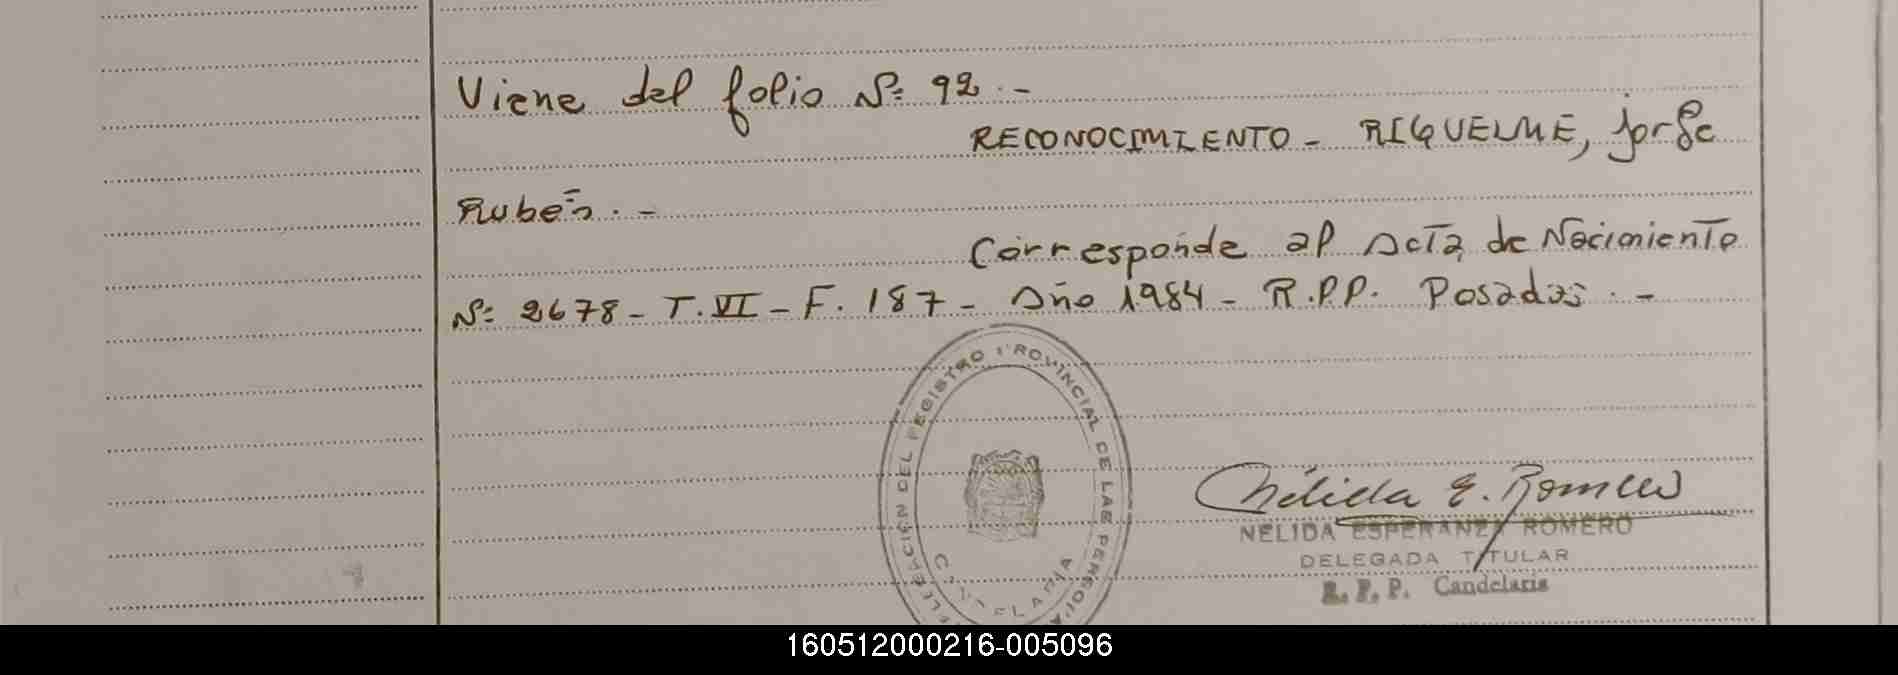 Viene del folio Nº 92.-
RECONOCIMIENTO - RIQUELME, Jorge
Rubén.-
Corresponde al Acta de Nacimiento
Nº 2678 - T. VI - F. 187 - Año 1984 - R.P.P. Posadas.-
DELEGACION DEL REGISTRO PROVINCIAL DE LAS PERSONAS
CANDELARIA
Nélida E. Romero
NELIDA ESPERANZA ROMERO
DELEGADA TITULAR
R. P. P. Candelaria
160512000216-005096